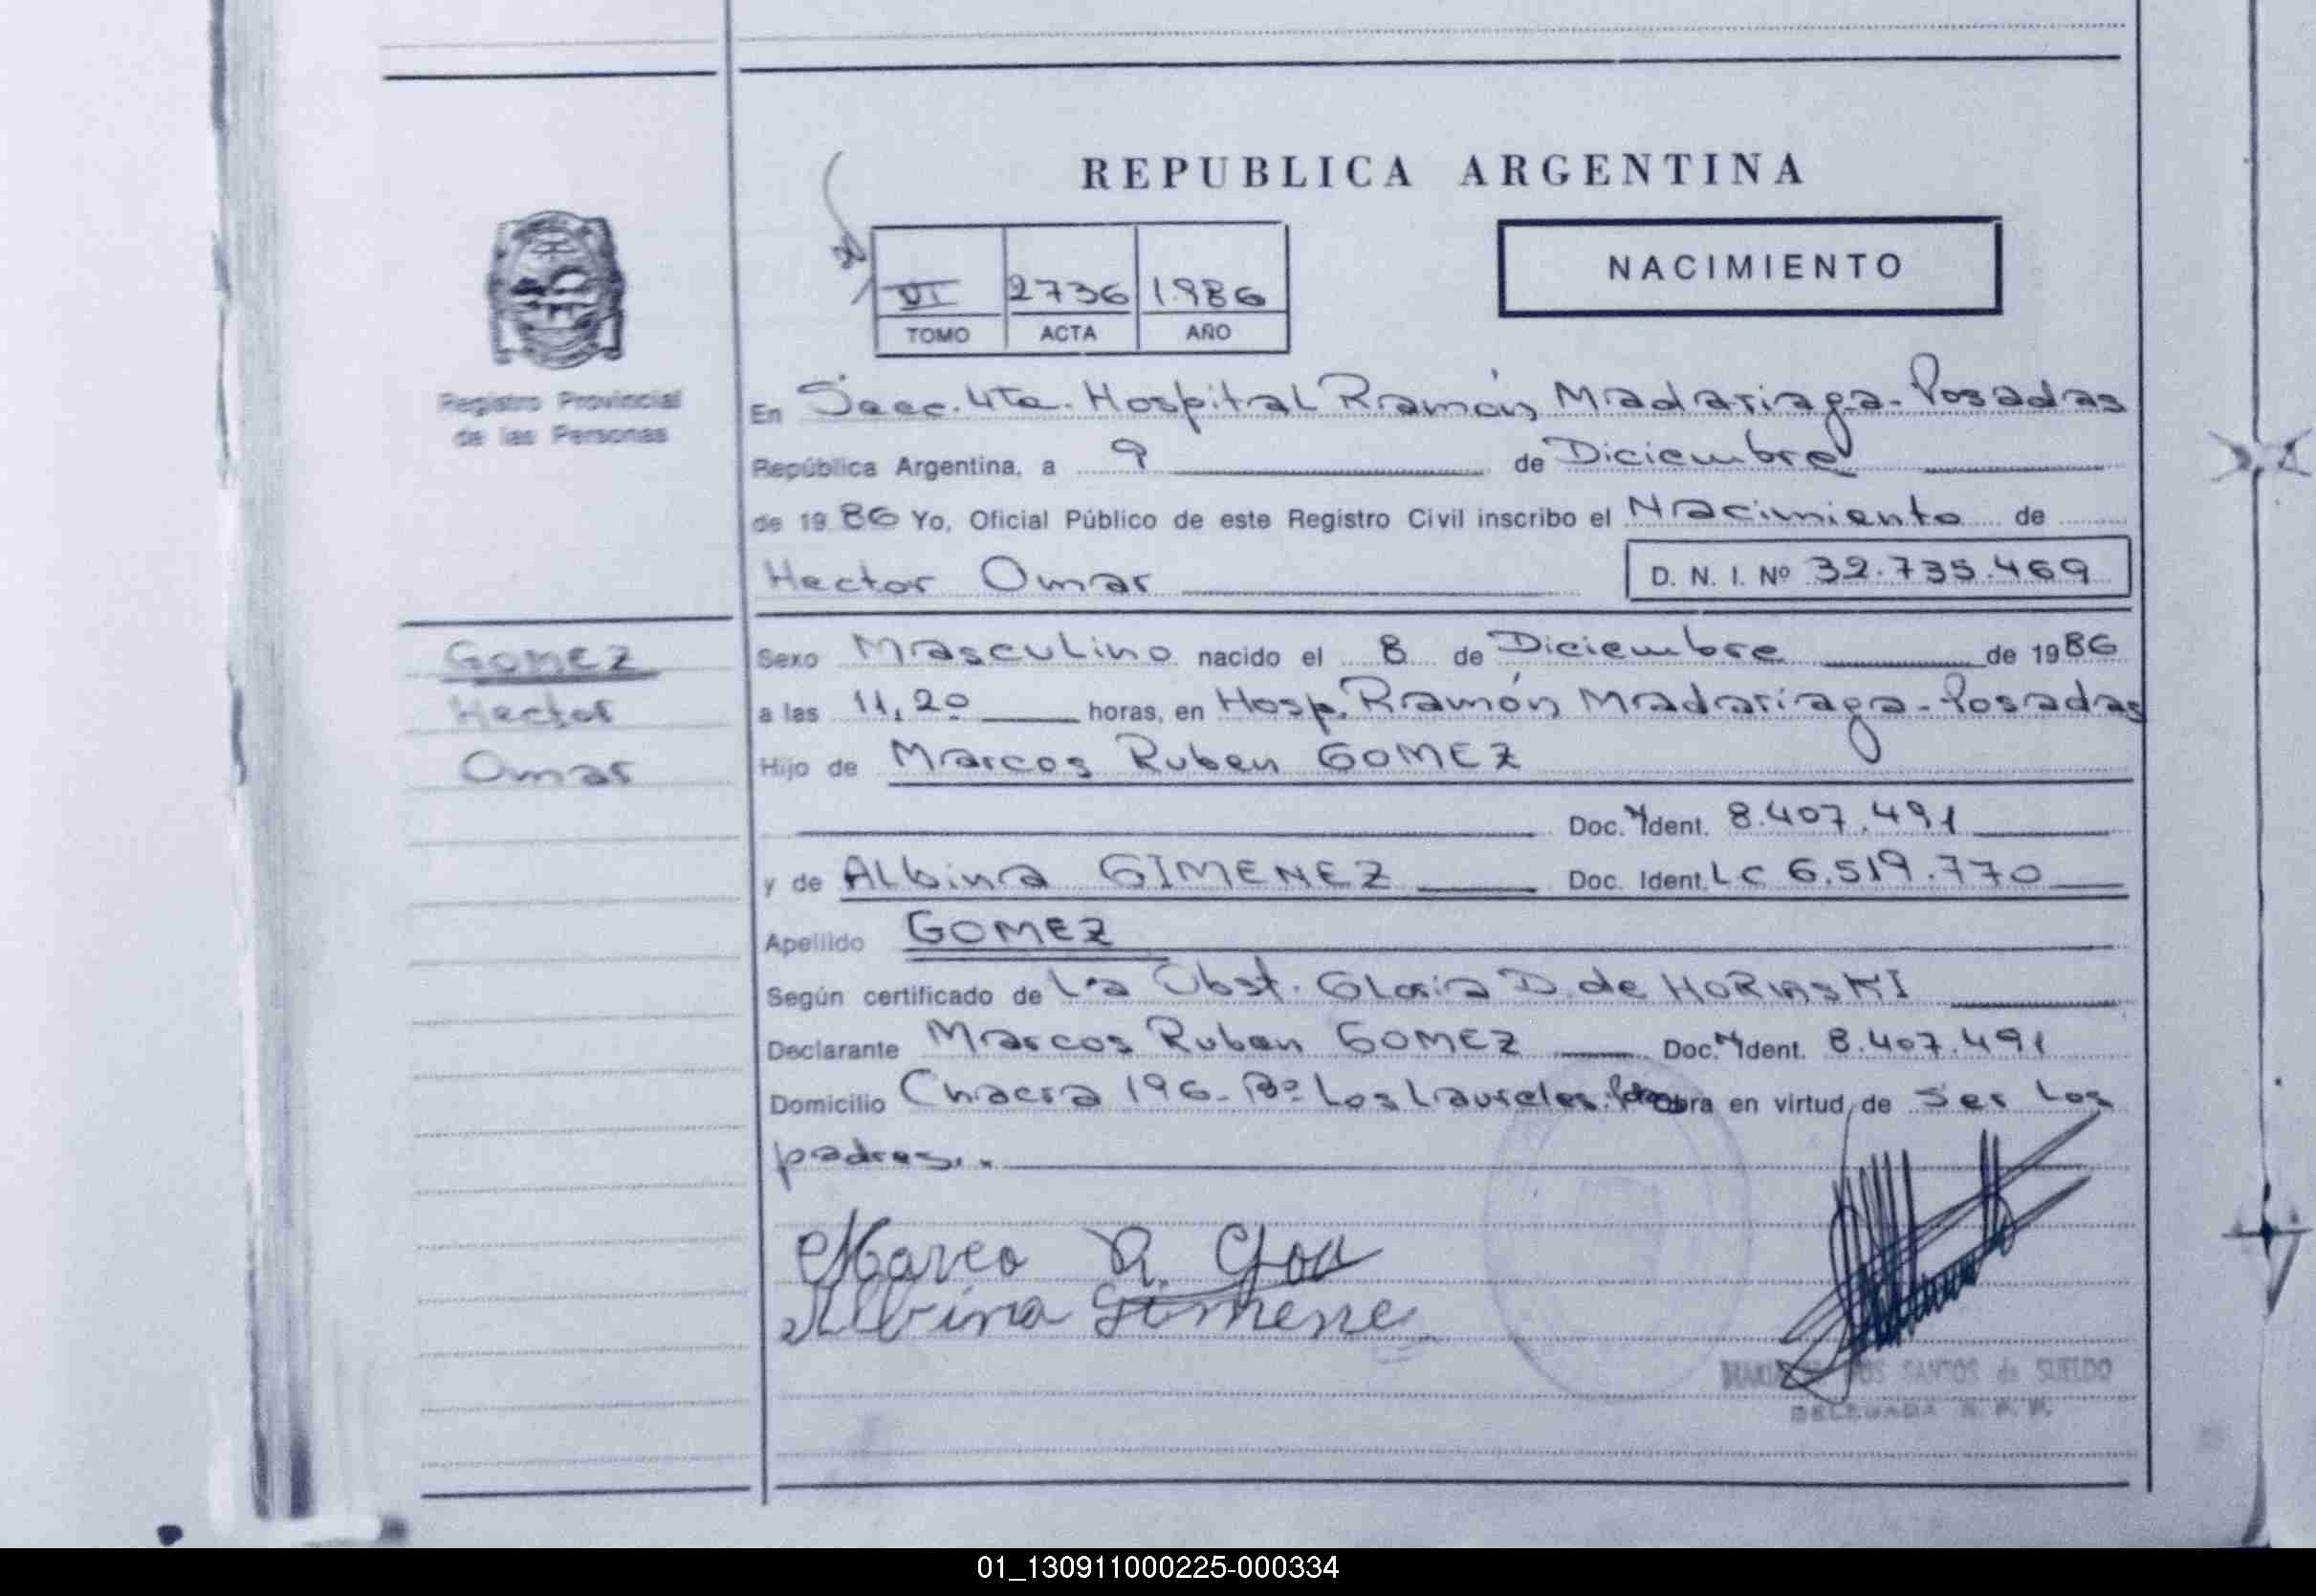 REPUBLICA ARGENTINA
NACIMIENTO
VI 2736 1.986
TOMO ACTA AÑO
Registro Provincial
de las Personas
En Secc. 4ta. Hospital Ramón Madariaga - Posadas
República Argentina, a 9 de Diciembre
de 1986 Yo, Oficial Público de este Registro Civil inscribo el Nacimiento de
Hector Omar D. N. I. Nº 32.735.469
GOMEZ
Hector
Omar
Sexo Masculino nacido el 8 de Diciembre de 1986
a las 11,20 horas, en Hosp. Ramón Madariaga - Posadas
Hijo de Marcos Ruben GOMEZ
Doc. Ident. 8.407.491
y de Albina GIMENEZ Doc. Ident. LC 6.519.770
Apellido GOMEZ
Según certificado de La Obst. Gloria D. de
Declarante Marcos Ruben GOMEZ Doc. Ident. 8.407.491
Domicilio Chacra 196 - Bº Los Laureles obra en virtud de ser los
padres..
Marco R. Goa
Albina Gimene
DOS SANTOS de SUELDO
DELEGADA
01_130911000225-000334